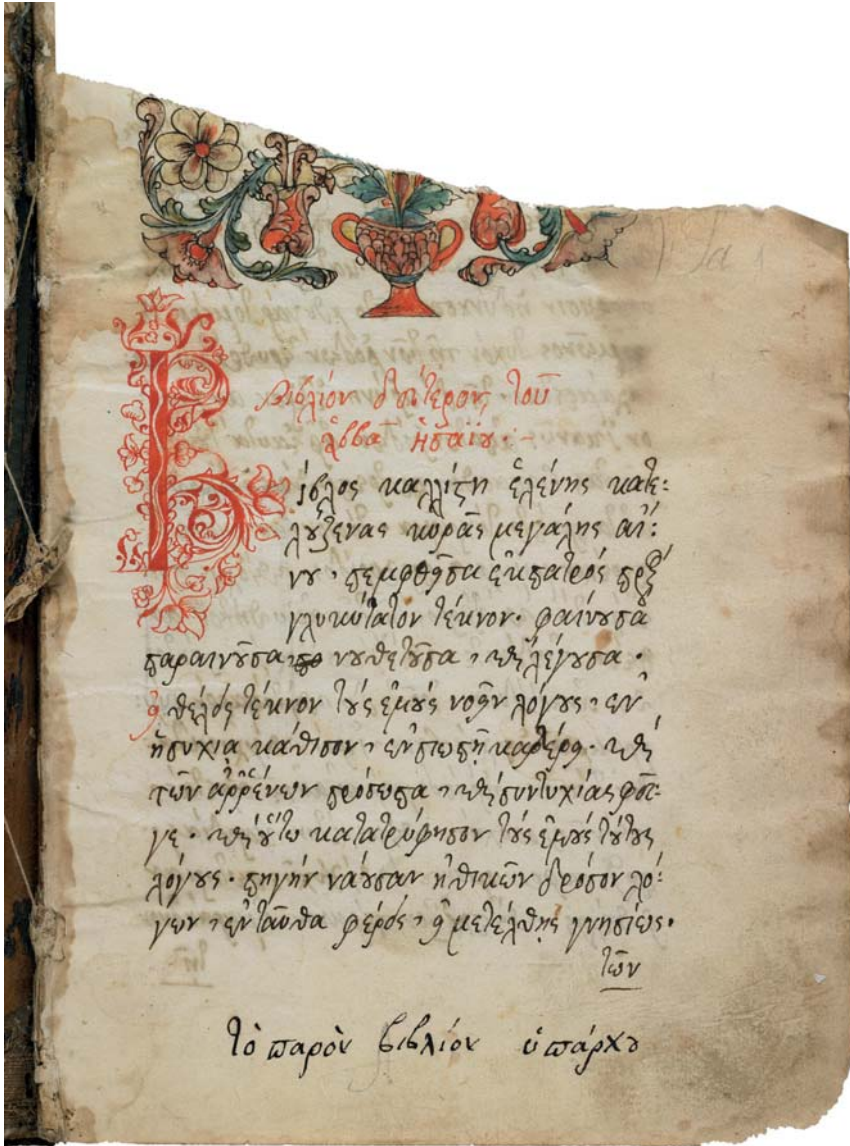 Βιβλίον δεύτερον, τοῦ
ἀββᾶ Ἡσαΐου :~
Βίβλος καλλίστη ἑλένης κατε:
λούζενας κυρᾶς μεγάλης αἵ:
νου · πεμφθεῖσα ἐκ πατρός πρὸς
γλυκύτατον τέκνον · φαίνουσα
παραινοῦσα νουθετοῦσα, καὶ λέγουσα ·
εἰ θέλεις τέκνον τοὺς ἐμοὺς νοεῖν λόγους, ἐν
ἡσυχία κάθισον, ἐν σιωπῇ καρτέρει · καὶ
τῶν ἀῤῥένων πρόσωπα, καὶ συντυχίας φεῦ:
γε · καὶ οὕτω κατατρύφησον τοὺς ἐμοὺς τούτους
λόγους · πηγὴν νάουσαν ἠθικῶν δρόσον λό:
γων, ἐνταῦθα φέρεις, εἰ μετέλθῃς γνησίως ·
τῶν
τὸ παρὸν βιβλίον ὑπάρχου